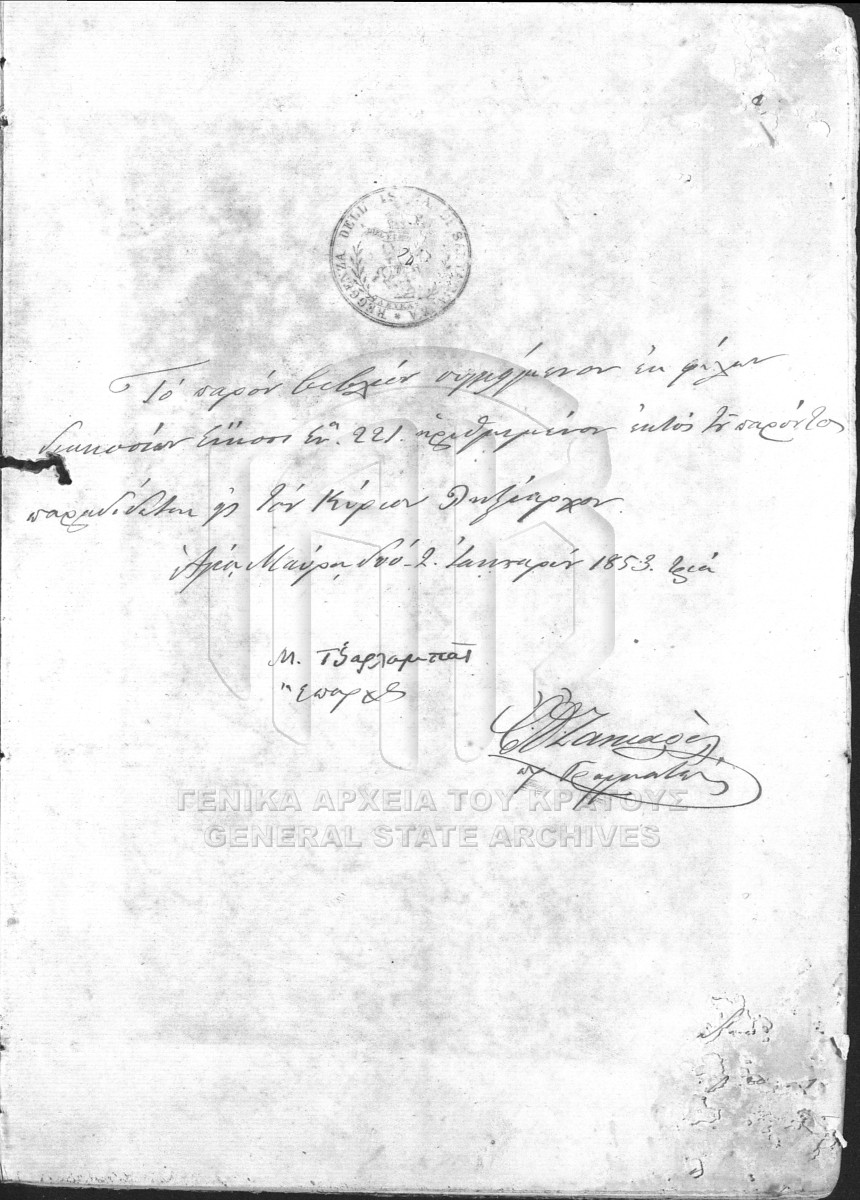 REGGENZA DELL' ISOLA DI S. MAURA
Τό παρόν βιβλίον συγκείμενον ἐκ φύλων
διακοσίων εἴκοσι ἕν. 221. ἠριθμημένον ἐκτός τοῦ παρόντος
παραδίδεται εἰς τόν Κύριον Ληξίαρχον.
Ἁγία Μαύρα δύο - 2. Ἰαννουαρίου 1853. τρία
Μ. Τζαρλαμπᾶς
ὁ Έπαρχος
Γραμματεύς
ΓΕΝΙΚΑ ΑΡΧΕΙΑ ΤΟΥ ΚΡΑΤΟΥΣ
GENERAL STATE ARCHIVES